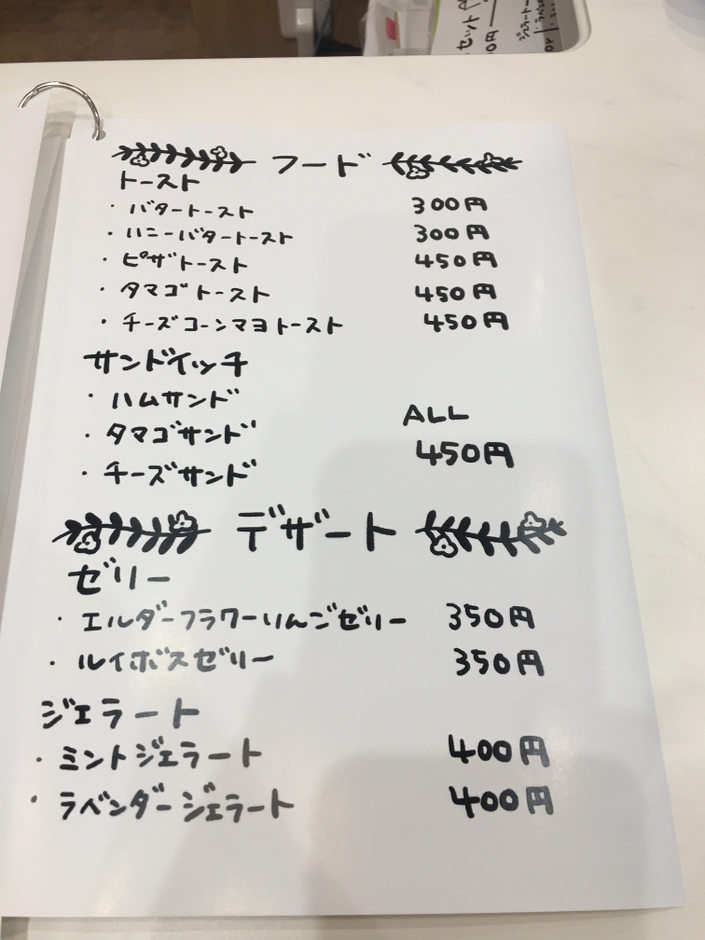 フード
トースト
・バタートースト 300円
・ハニーバタートースト 300円
・ピザトースト 450円
・タマゴトースト 450円
・チーズコーンマヨトースト 450円
サンドイッチ
・ハムサンド
・タマゴサンド
・チーズサンド
ALL
450円
デザート
ゼリー
・エルダーフラワーりんごゼリー 350円
・ルイボスゼリー 350円
ジェラート
・ミントジェラート 400円
・ラベンダージェラート 400円